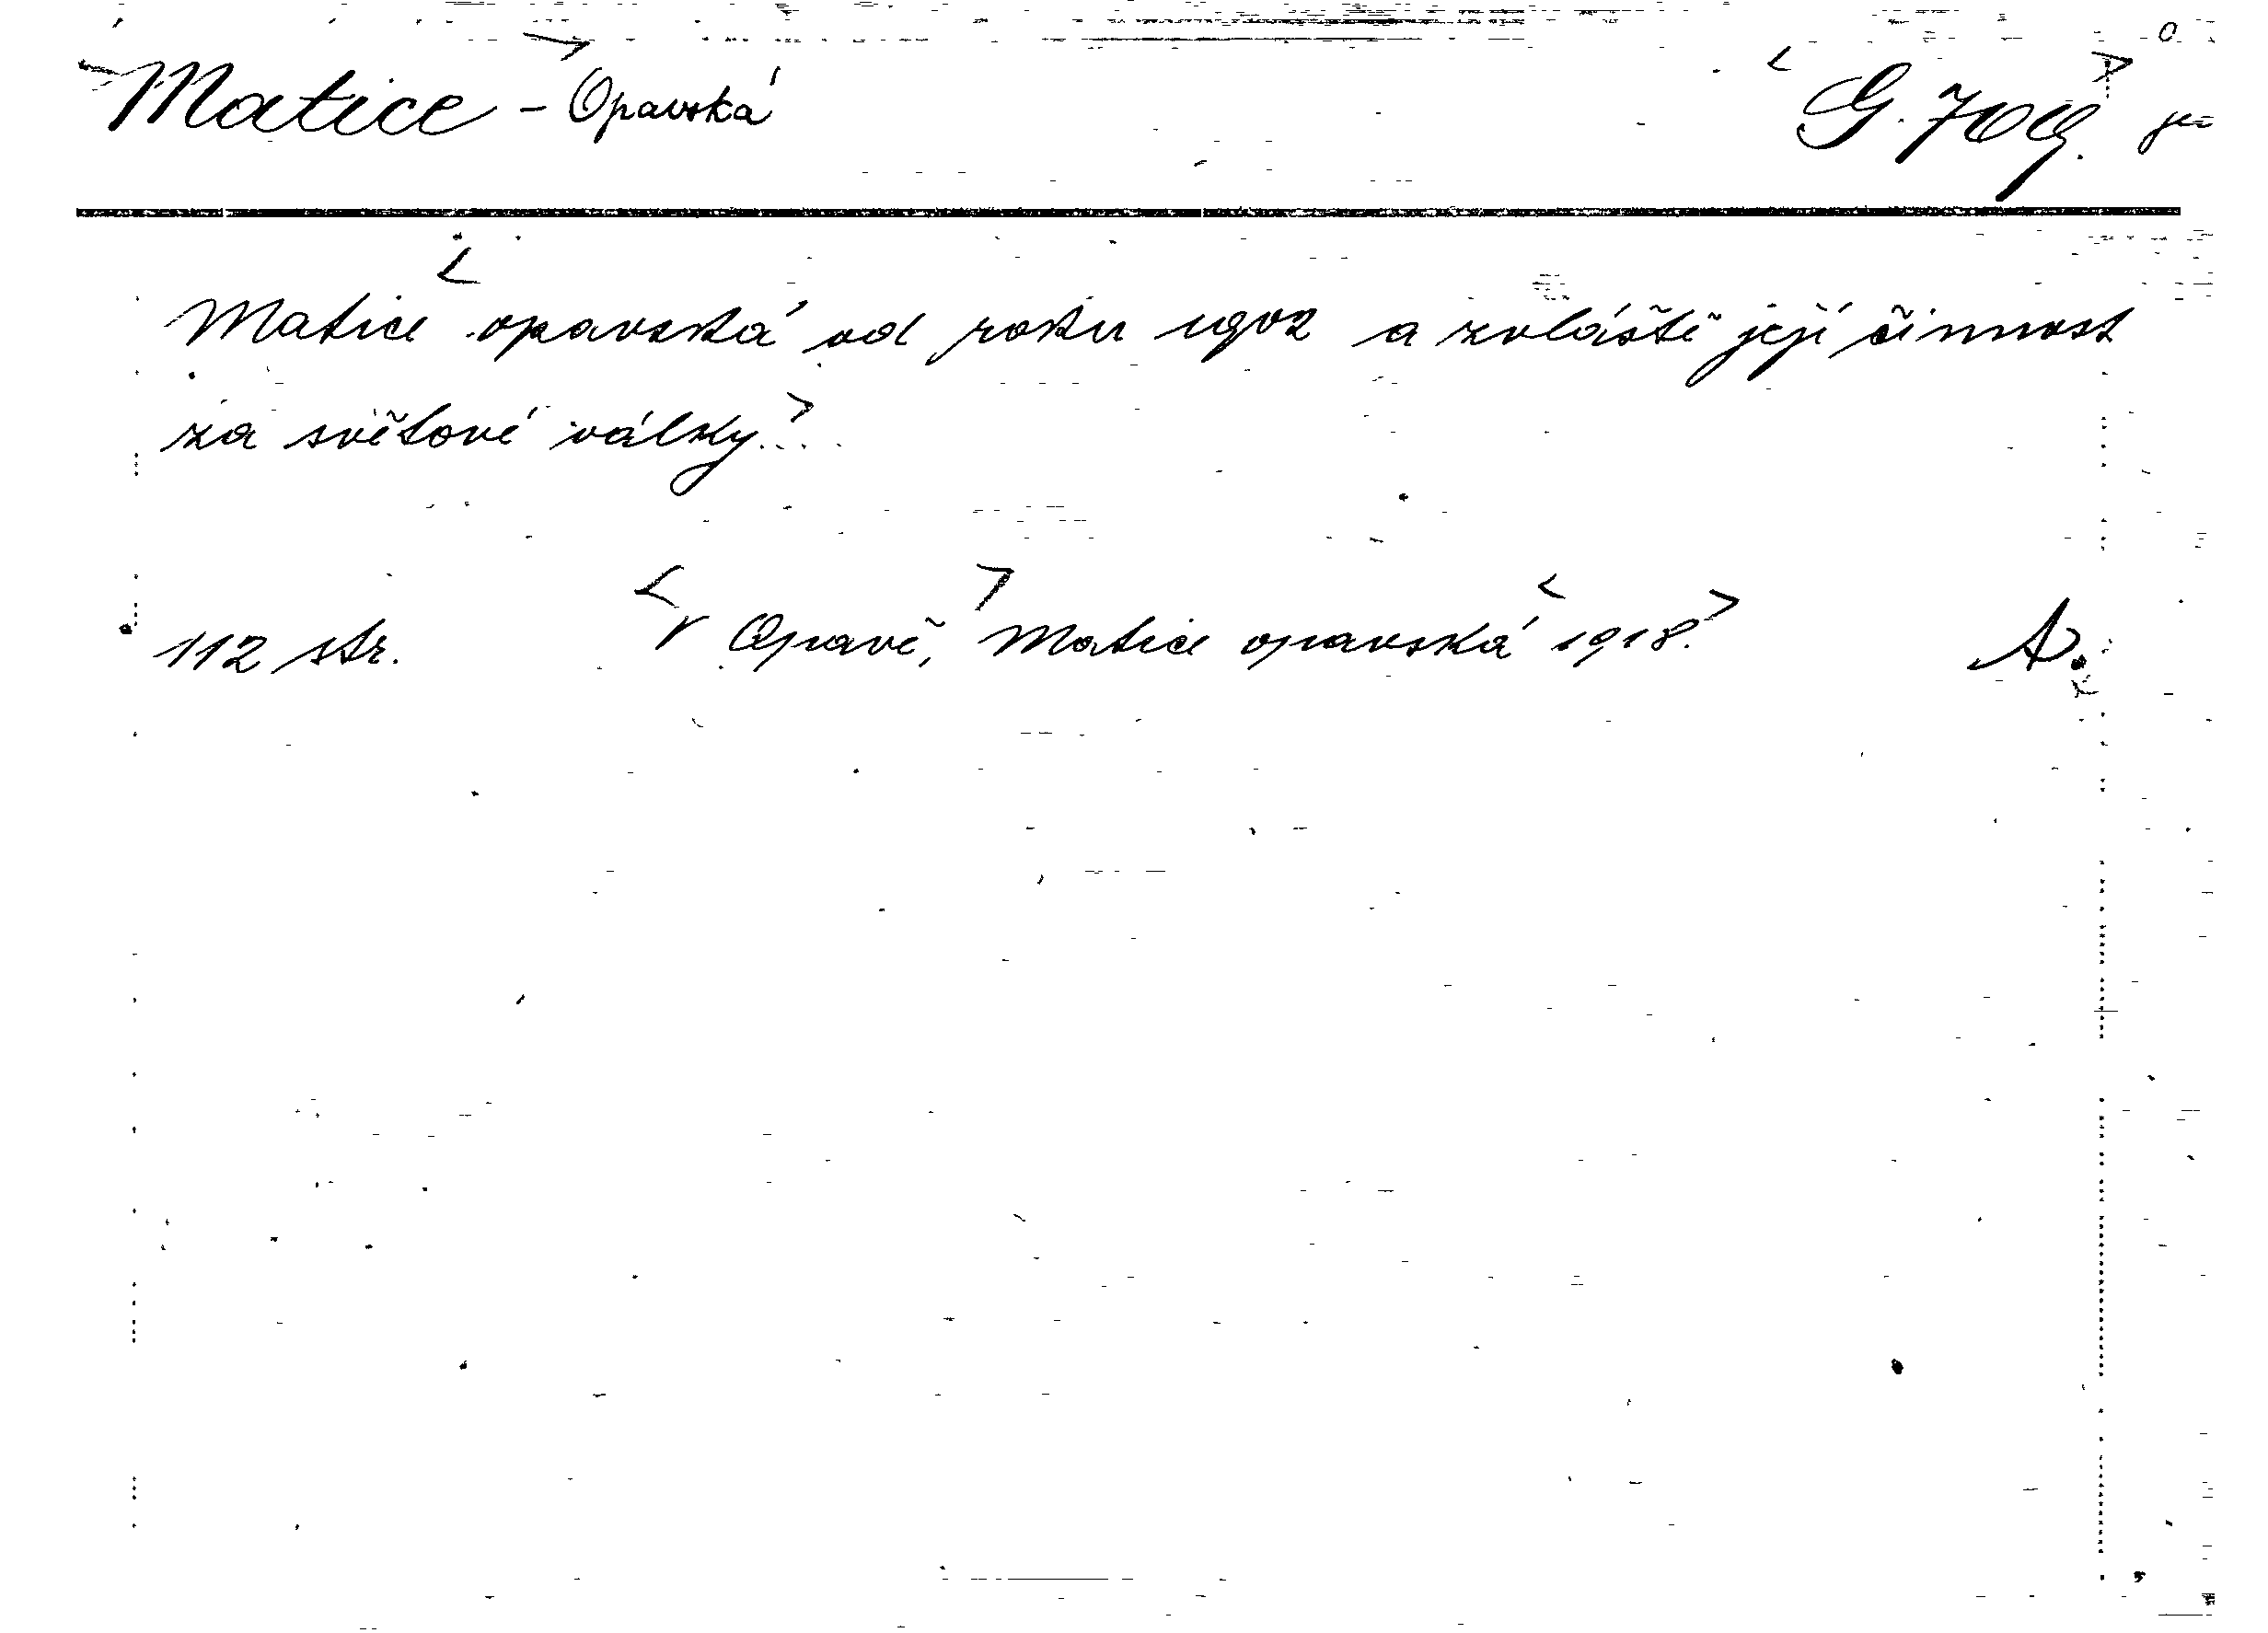 Matice - Opavská G. 709.
Matice opavská od roku 1902 a zvláště její činnost
za světové války.
112 str. V Opavě, Matice opavská 1918. A.